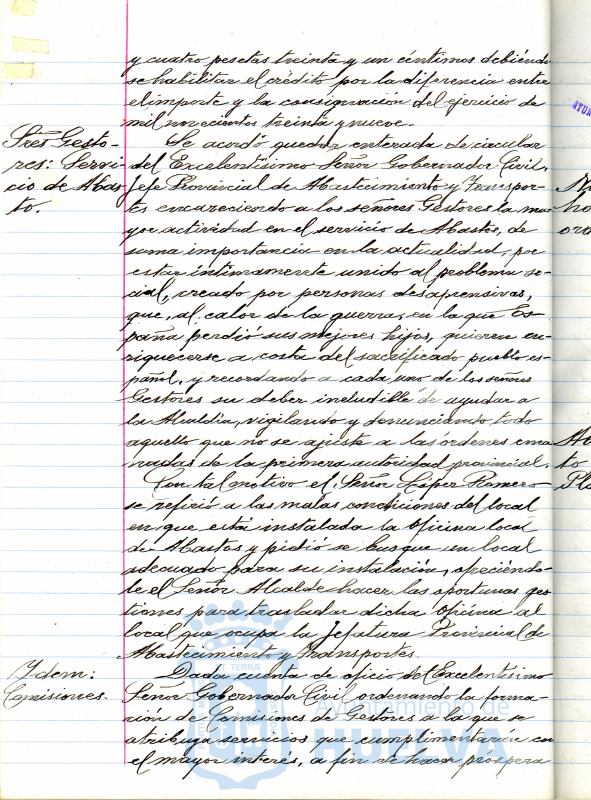 y cuatro pesetas treinta y un céntimos debiéndo
se habilitar el crédito por la diferencia entre
el importe y la consignación del ejercicio de
mil novecientos treinta y nueve.
Sres Gesto-
res: Servi-
cio de Abas
to.
Se acordó quedar enterada de circular
del Excelentísimo Señor Gobernador Civil,
Jefe Provincial de Abastecimiento y Transpor-
tes encareciendo a los señores Gestores la ma-
yor actividad en el servicio de Abastos, de
suma importancia en la actualidad, por
estar íntimamente unido al problema so-
cial, creado por personas desaprensivas,
que, al calor de la guerra, en la que Es-
paña perdió sus mejores hijos, quieren en-
riquecerse a costa del sacrificado pueblo es-
pañol, y recordando a cada uno de los señores
Gestores su deber ineludible de ayudar a
la Alcaldía, vigilando y denunciando todo
aquello que no se ajuste a las órdenes ema
nadas de la primera autoridad provincial.
Con tal motivo el Señor López Romero
se refirió a las malas condiciones del local
en que está instalada la Oficina local
de Abastos y pidió se busque un local
adecuado para su instalación, ofreciéndo-
le el Señor Alcalde hacer las oportunas ges
tiones para trasladar dicha Oficina al
local que ocupa la Jefatura Provincial de
Abastecimiento y Transportes.
Ydem:
Comisiones.
Dada cuenta de oficio del Excelentísimo
Señor Gobernador Civil ordenando la forma-
ción de Comisiones de Gestores a la que se
atribuya servicios que cumplimentarán con
el mayor interés, a fin de hacer próspera
Ayuntamiento de
HUELVA